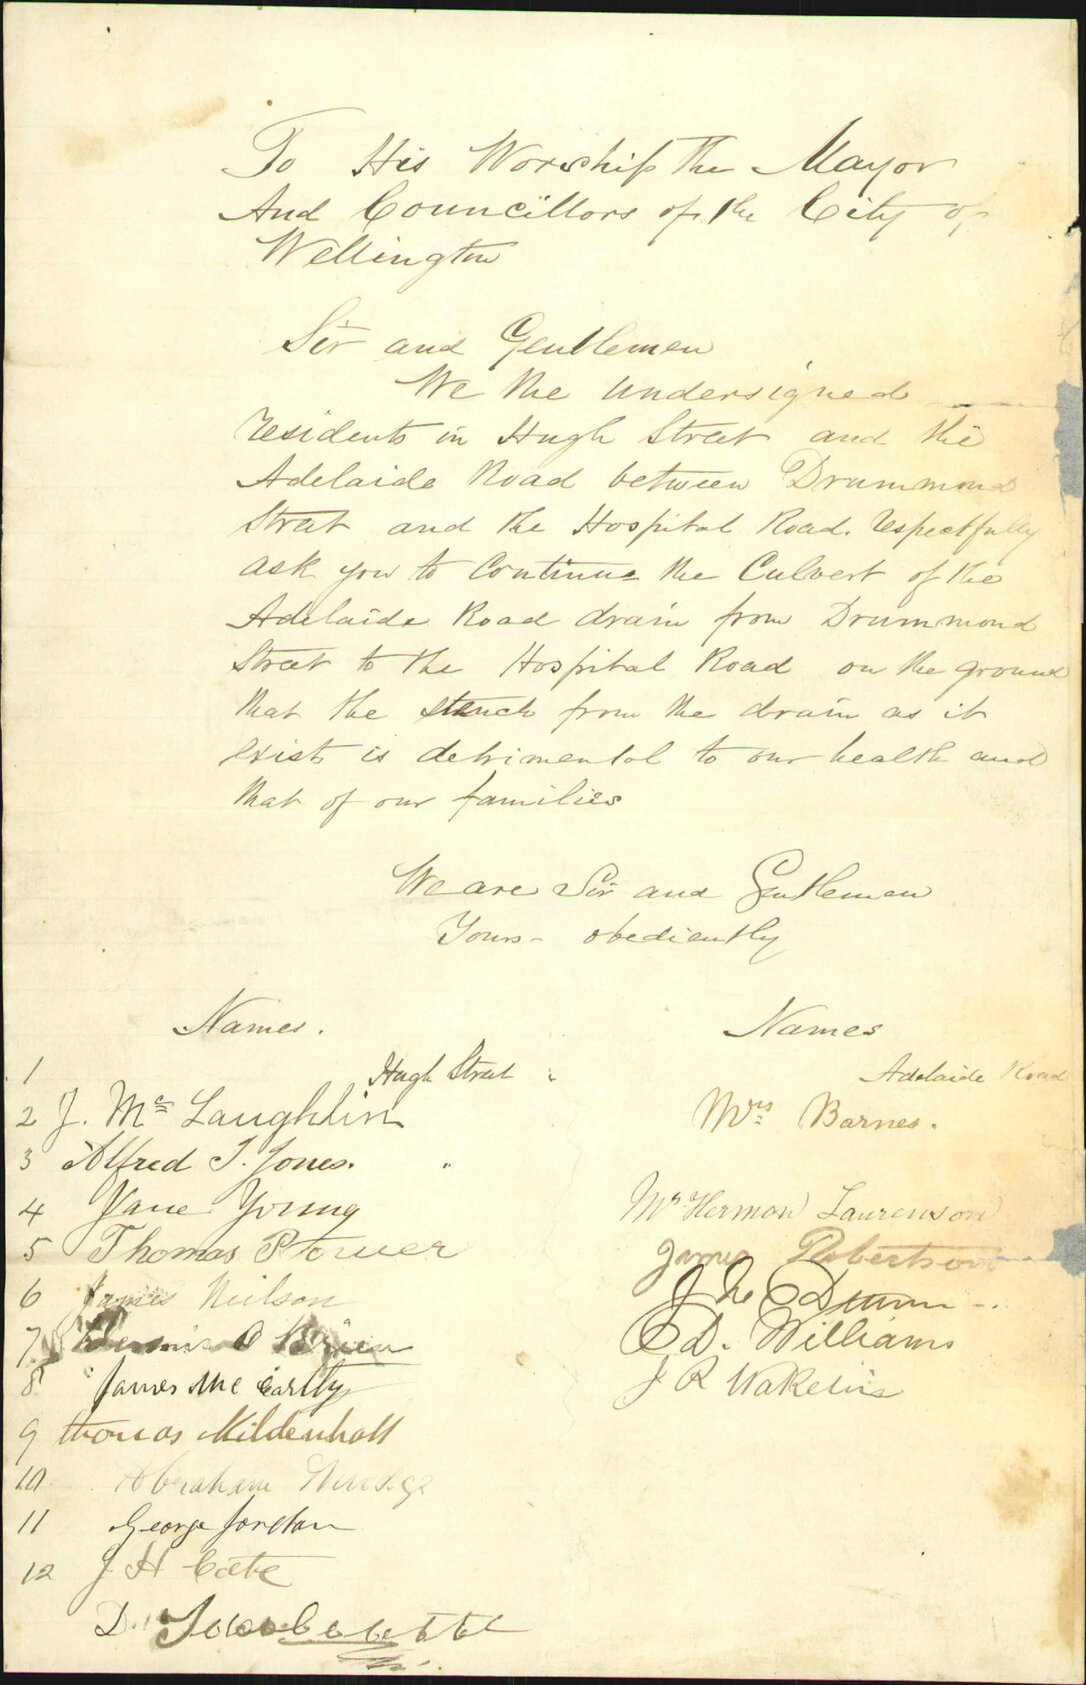 To His Worship The Mayor
And Councillors of the City of
Wellington
Sir and Gentlemen
We the undersigned
residents in Hugh Street and the
Adelaide Road between Drummond
Street and the Hospital Road. respectfully
ask you to Continue the Culvert of the
Adelaide Road drain from Drummond
Street to the Hospital Road on the ground
that the stench from the drain as it
exists is detrimental to our health and
that of our families
We are Sir and Gentlemen
Yours obediently
Names.
Names
1 Hugh Street
Adelaide Road
2 J. Mc Laughlin
Mrs Barnes.
3 Alfred J. Jones. "
4 Jane Young
Mr Hermon Laurenson
5 Thomas Plower
James Robertson
6 James Neilson
Dunn
7 Dennis O Brien
D. Williams
8 James Mc Carthy
J R Wakelin
9 thomas Mildenhall
10 Abraham
11 George Jordan
12 J H Cate
D.